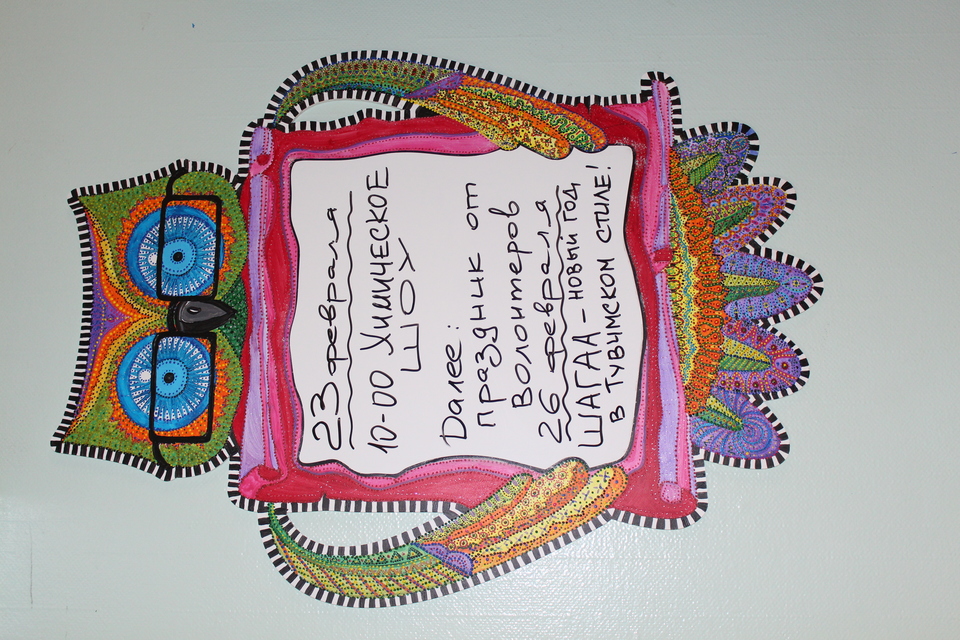 23 февраля
10-00 Химическое
шоу
Далее:
праздник от
Волонтеров
26 февраля
ШАГАА – новый год
в Тувымском стиле!